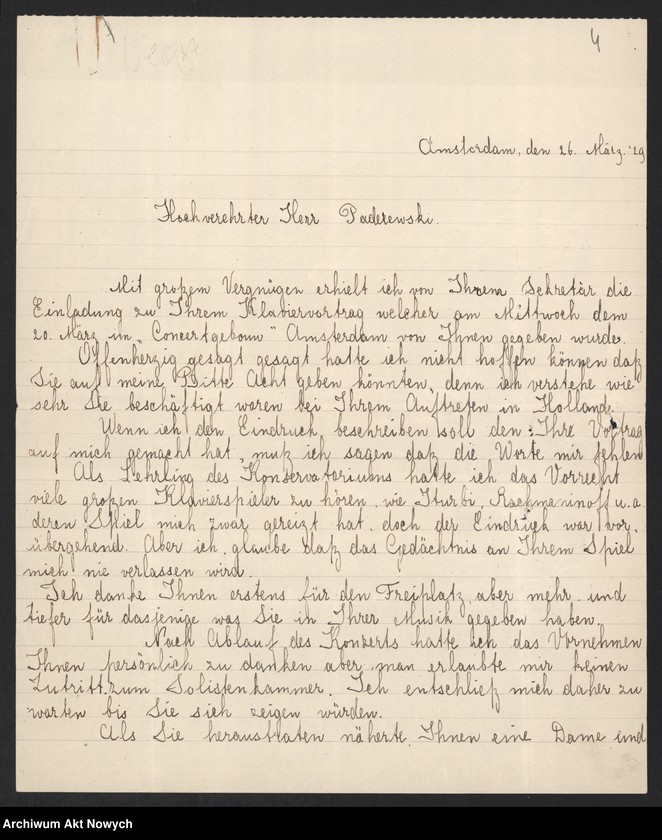 4
Amsterdam, den 26. März. '29
Hochverehrter Herr Paderewski.
Mit großem Vergnügen erhielt ich von Ihrem Sekretär die
Einladung zu Ihrem Klabiervortrag welcher am Mittwoch dem
20. März im "Concertgebouw" Amsterdam von Ihnen gegeben wurde.
Offenherzig gesagt gesagt hatte ich nicht hoffen können daß
Sie auf meine Bitte Acht geben könnten, denn ich verstehe wie
sehr Sie beschäftigt waren bei Ihrem Auftreten in Holland.
Wenn ich den Eindruck beschreiben soll den Ihre Vortrag
auf mich gemacht hat, muß ich sagen daß die Worte mir fehlen
Als Lehrling des Konservatoriums hatte ich das Vorrecht
viele großen Klavierspieler zu hören, wie Iturbi, Rachmaninoff u. a.
deren Spiel mich zwar gereizt hat, doch der Eindruck war vor-
übergehend. Aber ich glaube daß das Gedächtnis an Ihrem Spiel
mich nie verlassen wird.
Ich danke Ihnen erstens für den Freiplatz, aber mehr und
tiefer für dasjenige was Sie in Ihrer Musik gegeben haben.
Nach Ablauf des Konzerts hatte ich das Vornehmen
Ihnen persönlich zu danken aber man erlaubte mir keinen
Zutritt zum Solistenkammer. Ich entschließ mich daher zu
warten bis Sie sich zeigen würden.
Als Sie heraustraten näherte Ihnen eine Dame und
Archiwum Akt Nowych